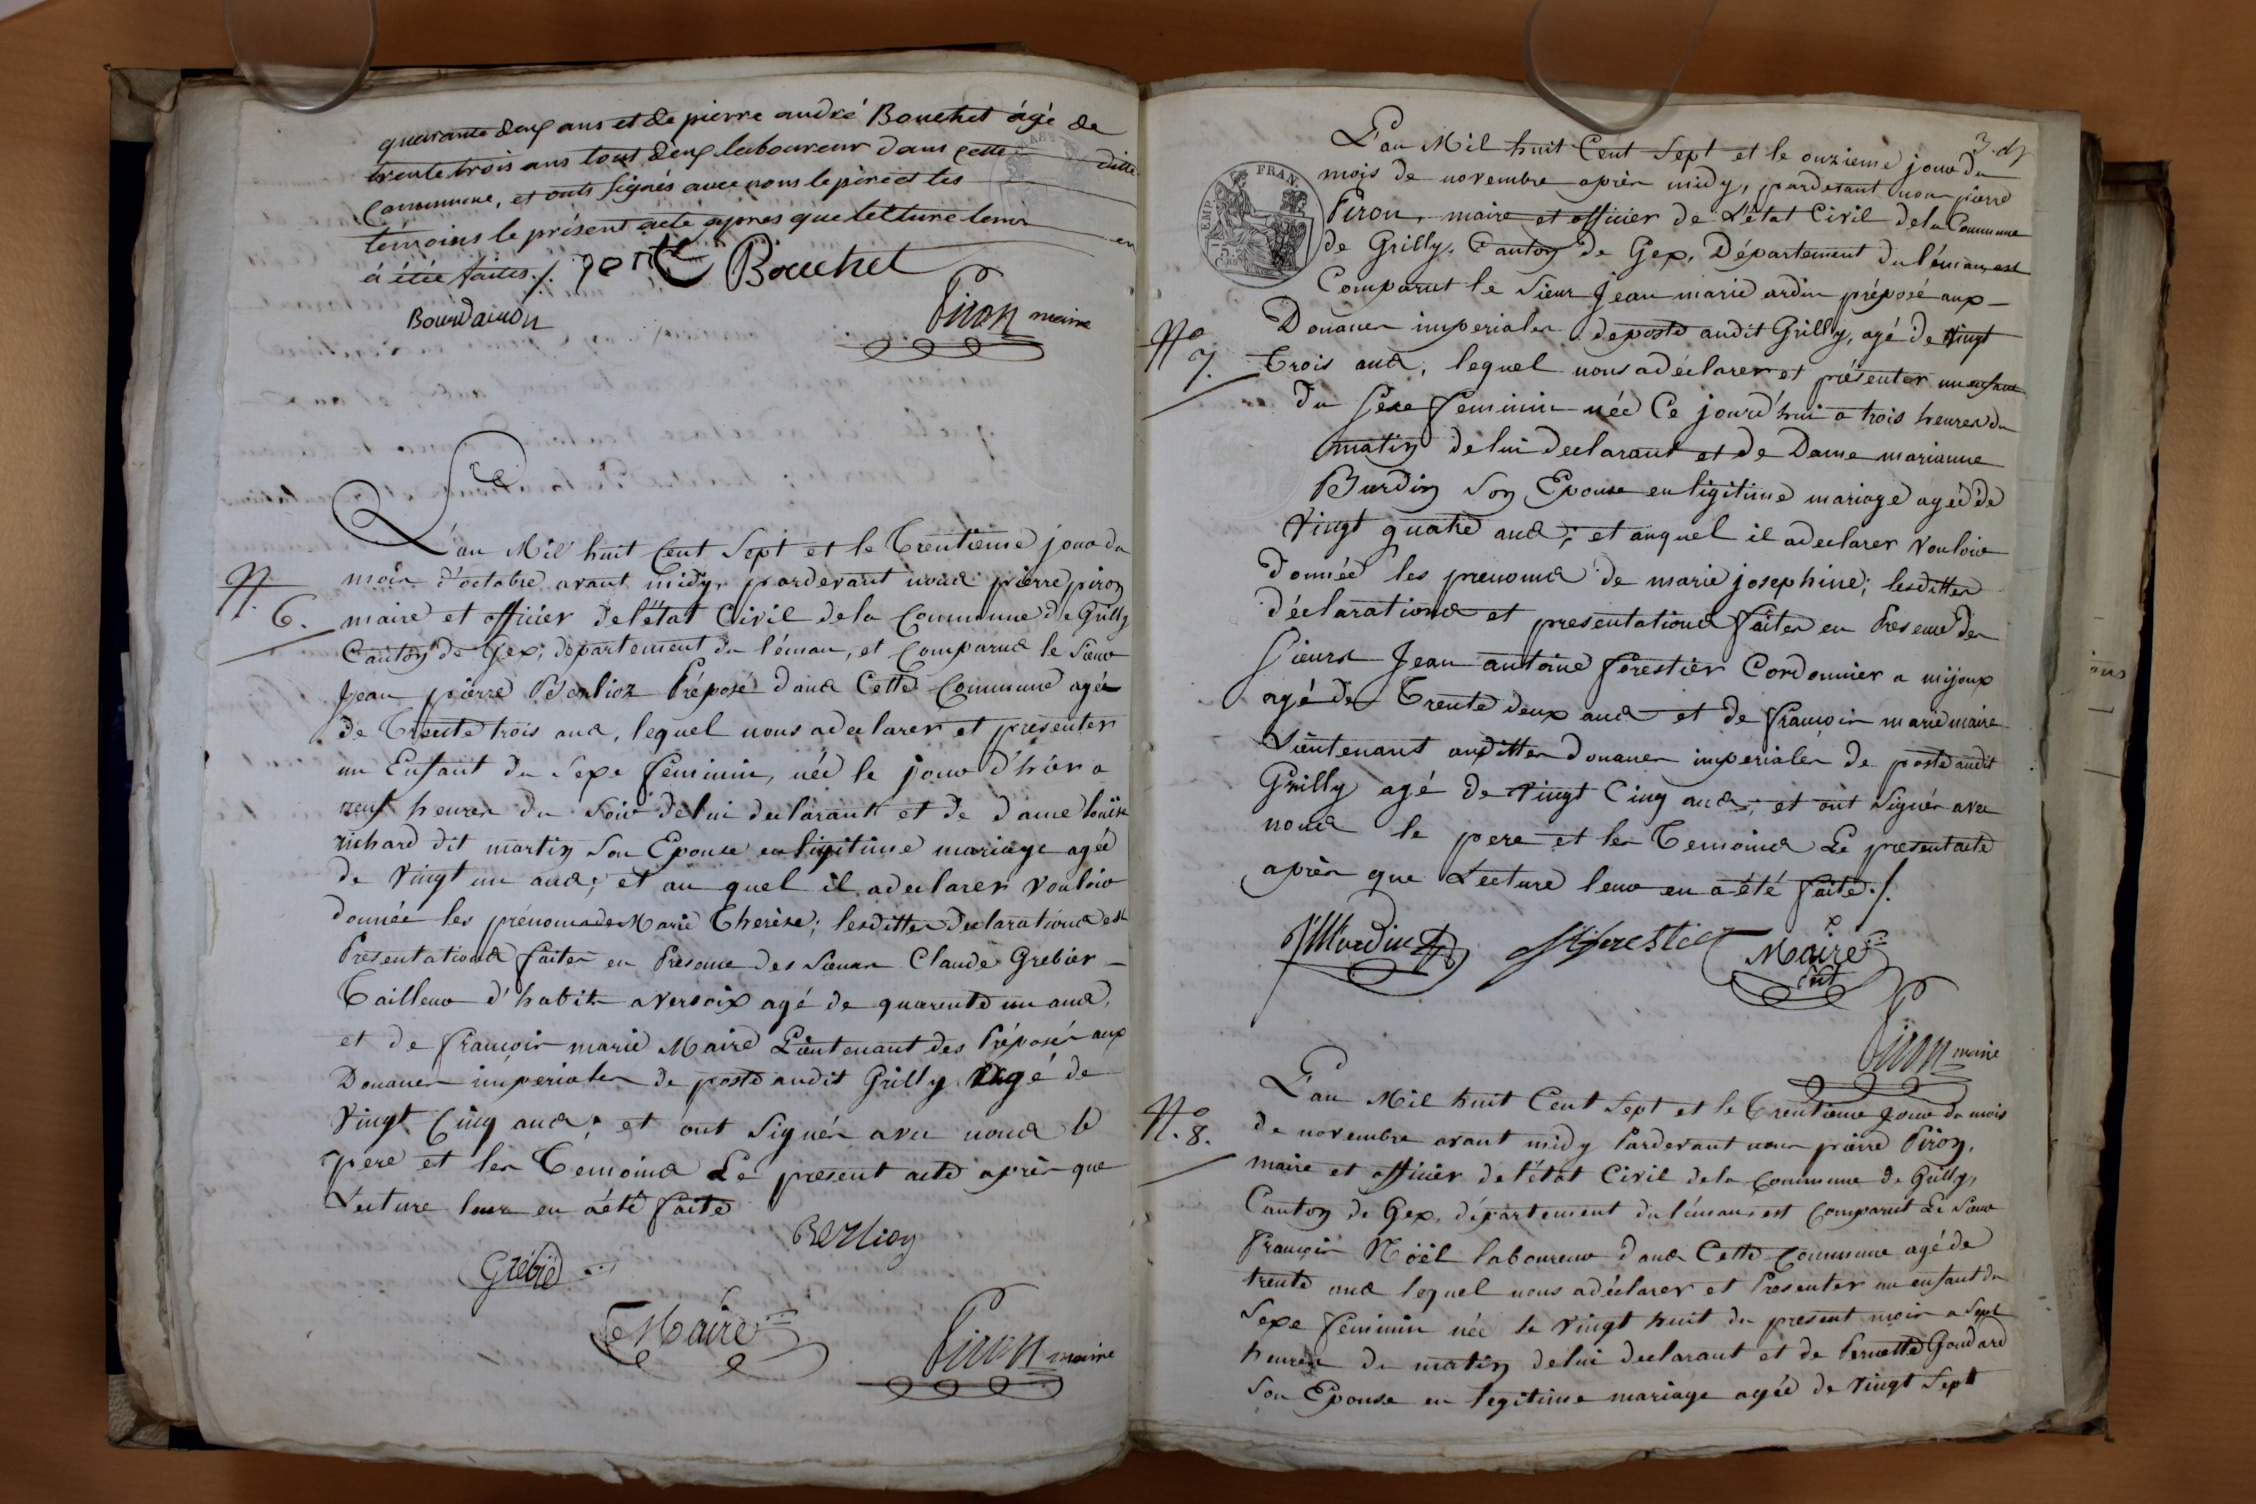 quarante deux ans et de pierre andré Bouchet âgé de
trente trois ans tous deux laboureur dans cette ditte
Commune, et onts signés avec nous le père et les
témoins le présent acte apres que lecture leur en
à étée faites ./.
Bouchet
Bourdaindn
Piron maire
L'an Mil huit Cent Sept et le Trentieme jour du
N. 6.
mois d'octobre avant midy, pardevant nous pierre piron
maire et officier de l'état Civil de la Commune de Grilly
Canton de Gex, département du léman, et Comparus le Sieur
Jean pierre Berlioz Préposé dans Cette Commune agée
de Trente trois ans, lequel nous a déclarer et presenter
un Enfant du Sexe feminin, née le jour d'hier a
neuf heures du Soir de lui declarant et de dame louise
richard dit martin Son Epouse en ligitime mariage agée
de Vingt un ans; et au quel il a declarer Vouloir
donnée les prénoms de Marie Therèse; lesdittes declarations et
Présentations faites en Présence des Sieurs Claude Grebier
Tailleur d'habits a Versoix agé de quarente un ans,
et de françois marie Maire Lieutenant des Préposés aux
Douanes imperiales de poste audit Grilly agé de
Vingt Cinq ans; et ont Signés avec nous le
pere et les Temoins Le present acte après que
Lecture leur en a été faite
Berlioz
Grebie
Maire
Piron maire
L'an Mil huit Cent Sept et le onzieme jour du
mois de novembre après midy, pardevant nous pierre
Piron, maire et officier de L'état Civil de la Commune
EMP. FRAN.
de Grilly, Canton de Gex, Département du léman, est
Comparut le Sieur Jean marie ardin préposé aux
N° 7.
Douanes imperiales de poste audit Grilly, agé de Vingt
Trois ans, lequel nous a déclarer et présenter un enfant
du Sexe feminin née Ce jourd'hui a trois heures du
matin de lui declarant et de Dame marianne
Burdin Son Epouse en ligitime mariage agée de
Vingt quatre ans; et auquel il a declarer Vouloir
donnée les prenoms de marie josephine; lesdittes
déclarations et presentations faites en Presence des
Sieurs Jean antoine forestier Cordonnier a mijoux
agé de Trente deux ans et de françois marie maire
Lieutenant auxdittes douanes imperiales de poste audit
Grilly agé de Vingt Cinq ans; et ont Signés avec
nous le pere et les Temoins Le present acte
après que Lecture leur en a été faite ./.
Maire
Piron maire
L'an Mil huit Cent Sept et le Trentieme Jour du mois
N°. 8.
de novembre avant midy Pardevant nous pierre Piron,
maire et officier de l'état Civil de la Commune de Grilly,
Canton de Gex, département du léman, est Comparut Le Sieur
François Nöel laboureur dans Cette Commune agé de
trente ans lequel nous a déclarer et Presenter un enfant du
Sexe feminin née le Vingt huit du present mois a Sept
heures du matin de lui declarant et de Pernette Goudard
Son Epouse en legitime mariage agée de Vingt Sept